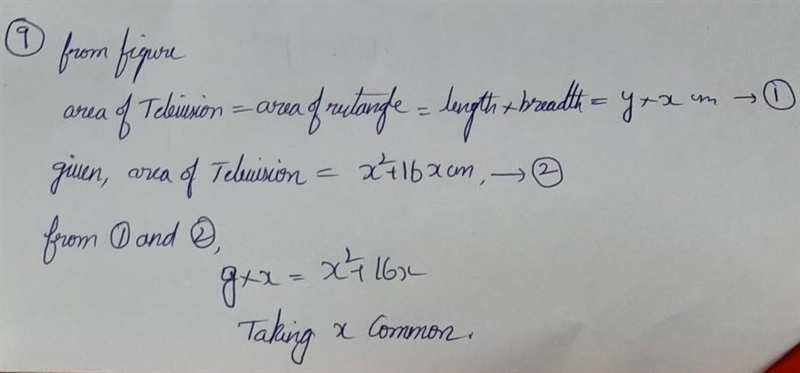 ⑨ from figure
area of Television = area of rectangle = length × breadth = y × x cm → ①
given, area of Television = x² + 16x cm, → ②
from ① and ②,
y × x = x² + 16x
Taking x Common.